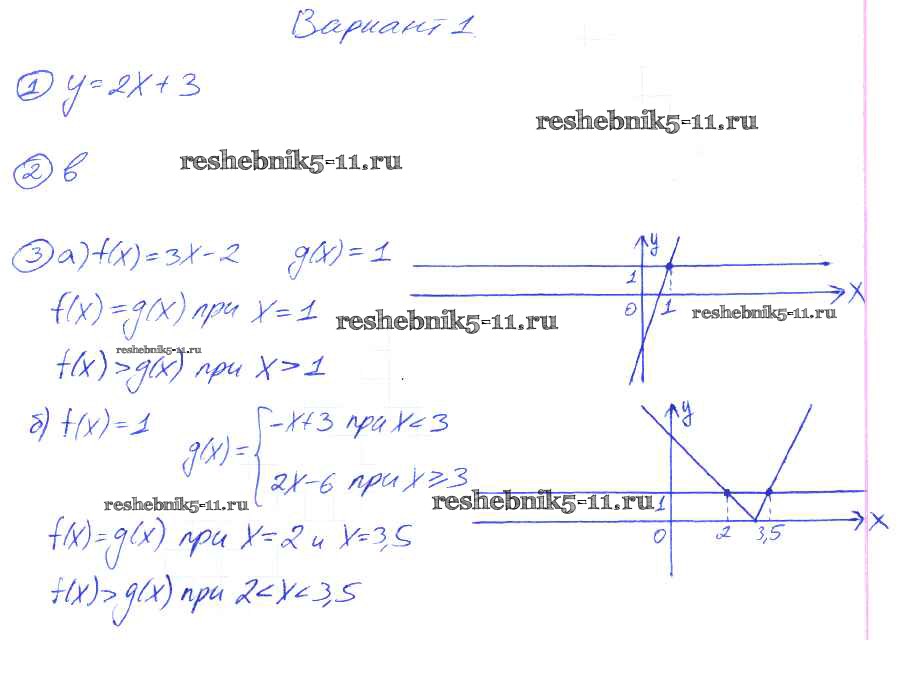 Вариант 1
① y=2x+3
reshebnik5-11.ru
② в
reshebnik5-11.ru
③ а) f(x)=3x-2 g(x)=1
f(x)=g(x) при x=1
reshebnik5-11.ru
f(x)>g(x) при x>1
reshebnik5-11.ru
y
1
0
1
x
reshebnik5-11.ru
б) f(x)=1
g(x)={ -x+3 при x<3
2x-6 при x≥3
reshebnik5-11.ru
reshebnik5-11.ru
f(x)=g(x) при x=2 и x=3,5
f(x)>g(x) при 2<x<3,5
y
1
0
2
3,5
x